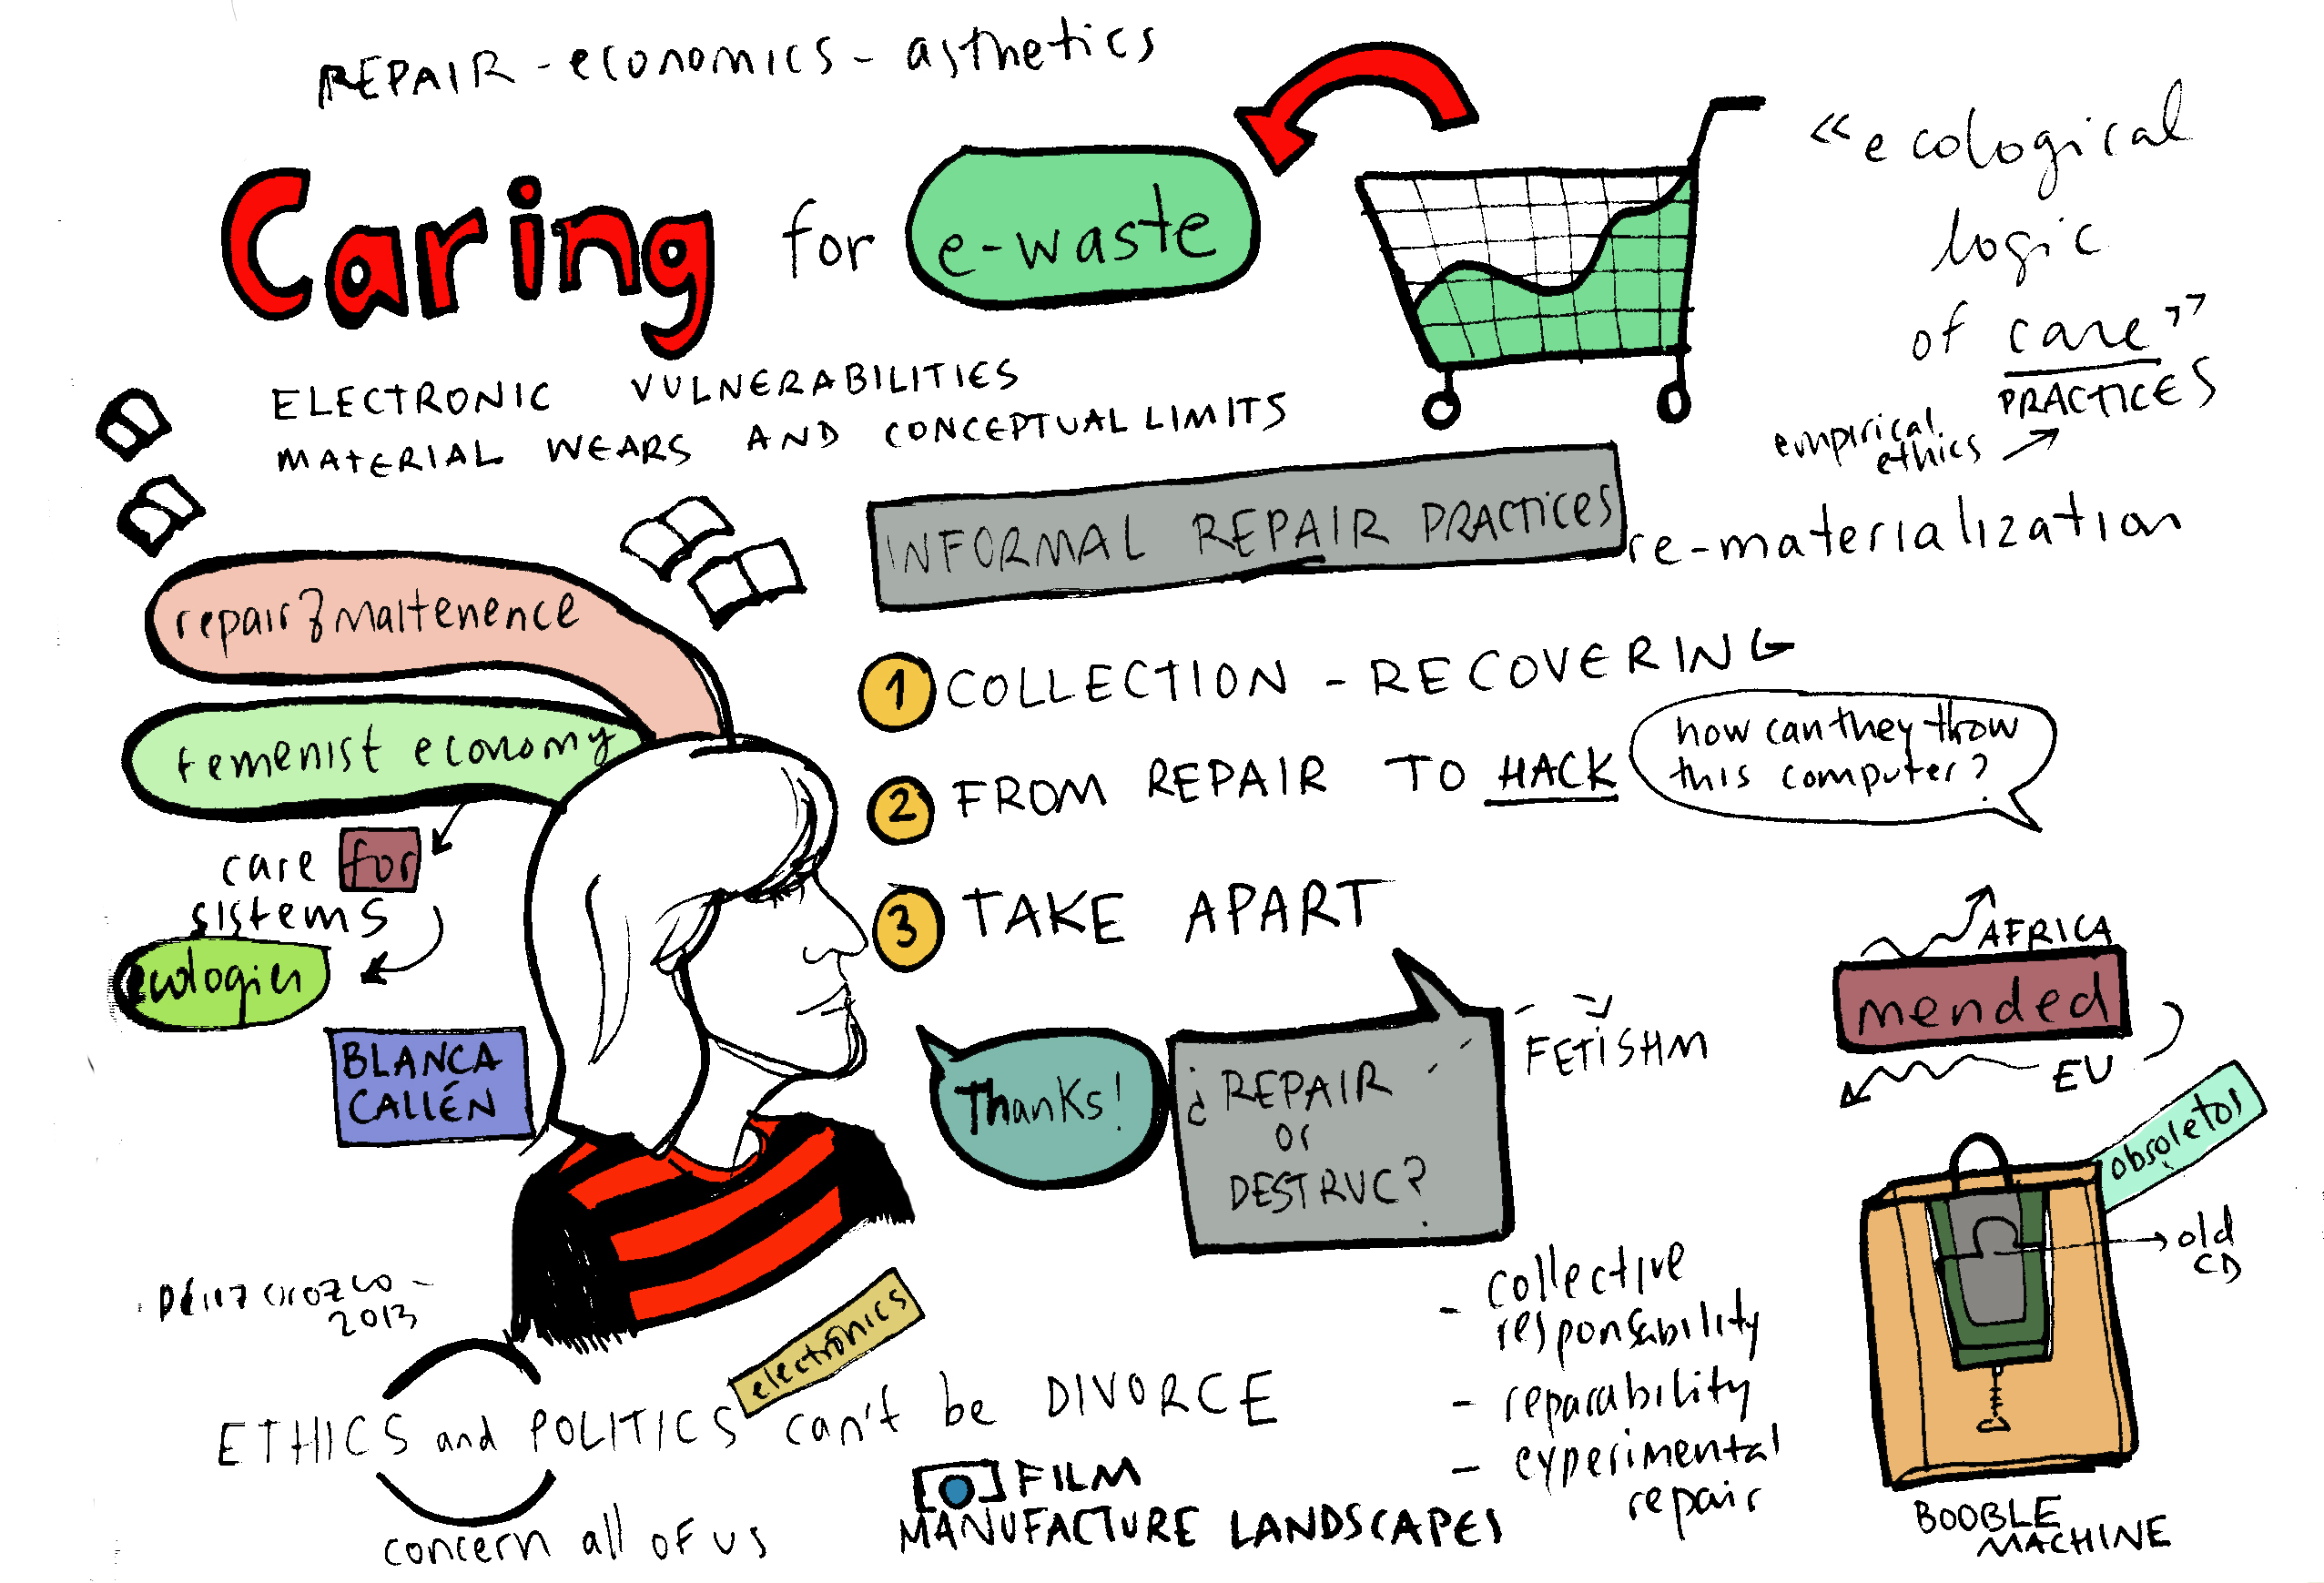 REPAIR - economics - asthetics
Caring for e-waste
ELECTRONIC VULNERABILITIES
MATERIAL WEARS AND CONCEPTUAL LIMITS
«ecological
logic
of care»
PRACTICES
empirical
ethics
INFORMAL REPAIR PRACTICES
re-materialization
repair & maltenence
femenist economy
care for
sistems
ecologies
BLANCA
CALLÉN
1 COLLECTION - RECOVERING
2 FROM REPAIR TO HACK
how can they throw
this computer?
3 TAKE APART
Thanks!
¿REPAIR
or
DESTRUC?
FETISHM
AFRICA
mended
EU
obsoletos
old
CD
BOOBLE
MACHINE
- collective
responsability
- reparability
- experimental
repair
Pérez Orozco -
2013
electronics
ETHICS and POLITICS can't be DIVORCE
concern all of us
FILM
MANUFACTURE LANDSCAPES